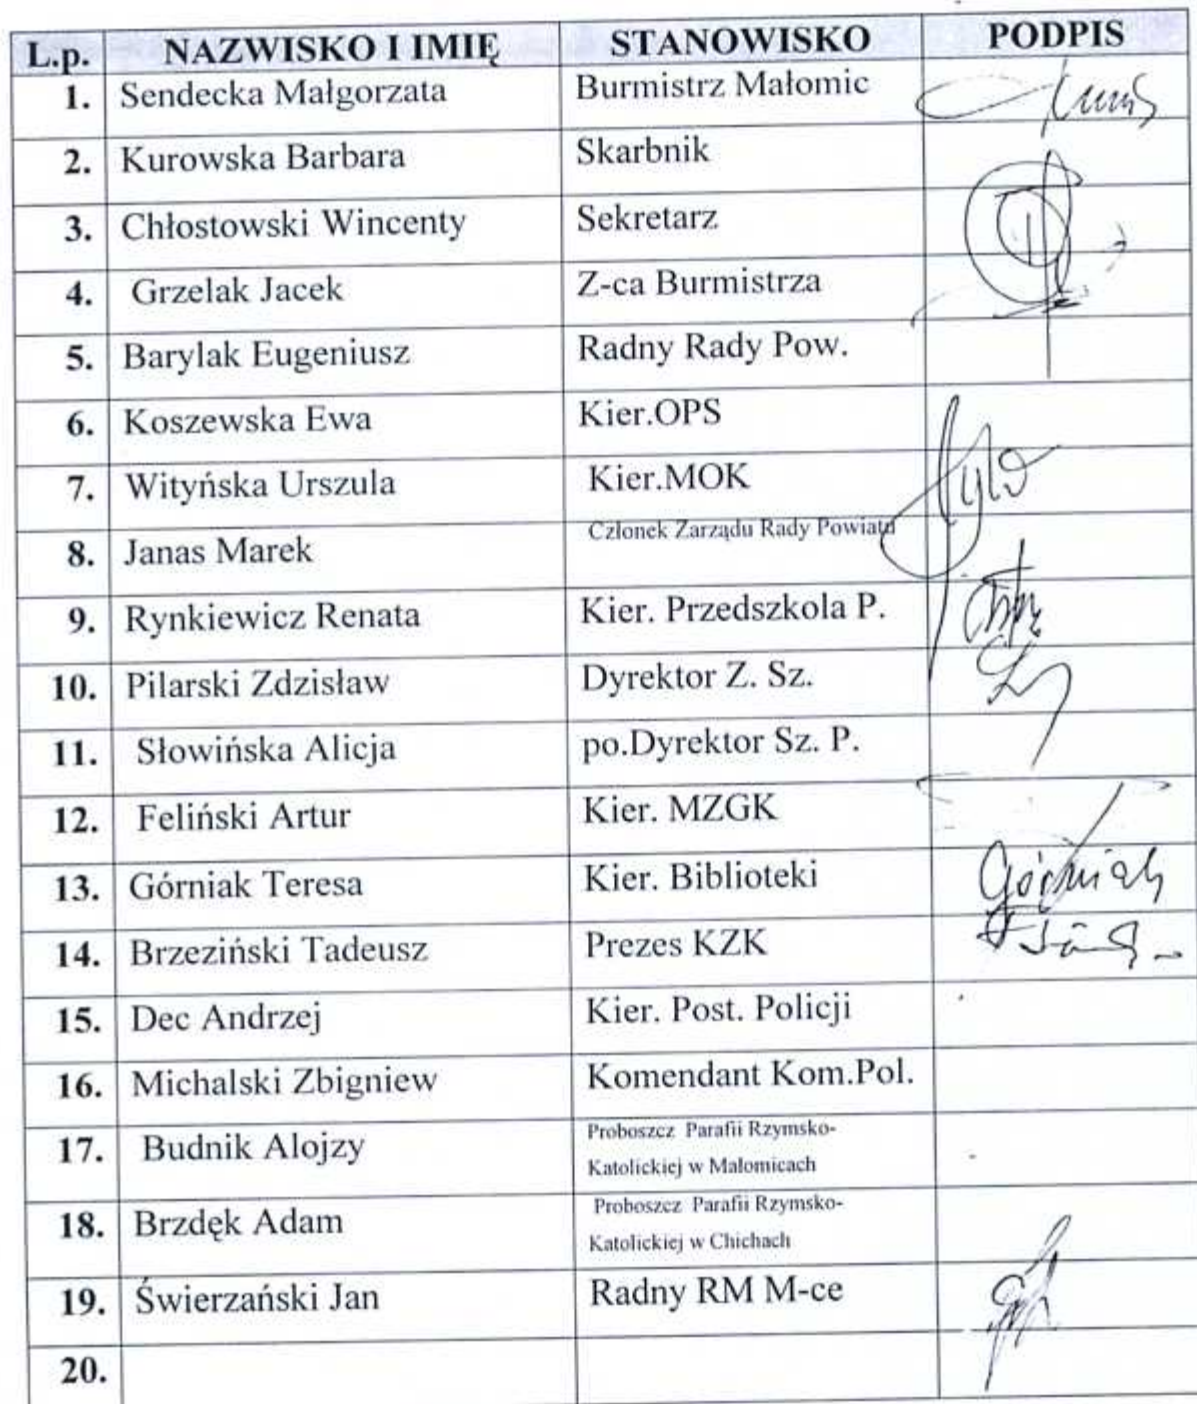 L.p. NAZWISKO I IMIĘ STANOWISKO PODPIS
1. Sendecka Małgorzata Burmistrz Małomic
2. Kurowska Barbara Skarbnik
3. Chłostowski Wincenty Sekretarz
4. Grzelak Jacek Z-ca Burmistrza
5. Barylak Eugeniusz Radny Rady Pow.
6. Koszewska Ewa Kier.OPS
7. Wityńska Urszula Kier.MOK
8. Janas Marek Członek Zarządu Rady Powiatu
9. Rynkiewicz Renata Kier. Przedszkola P.
10. Pilarski Zdzisław Dyrektor Z. Sz.
11. Słowińska Alicja po.Dyrektor Sz. P.
12. Feliński Artur Kier. MZGK
13. Górniak Teresa Kier. Biblioteki Górniak
14. Brzeziński Tadeusz Prezes KZK
15. Dec Andrzej Kier. Post. Policji
16. Michalski Zbigniew Komendant Kom.Pol.
17. Budnik Alojzy Proboszcz Parafii Rzymsko-
Katolickiej w Małomicach
18. Brzdęk Adam Proboszcz Parafii Rzymsko-
Katolickiej w Chichach
19. Świerzański Jan Radny RM M-ce
20.